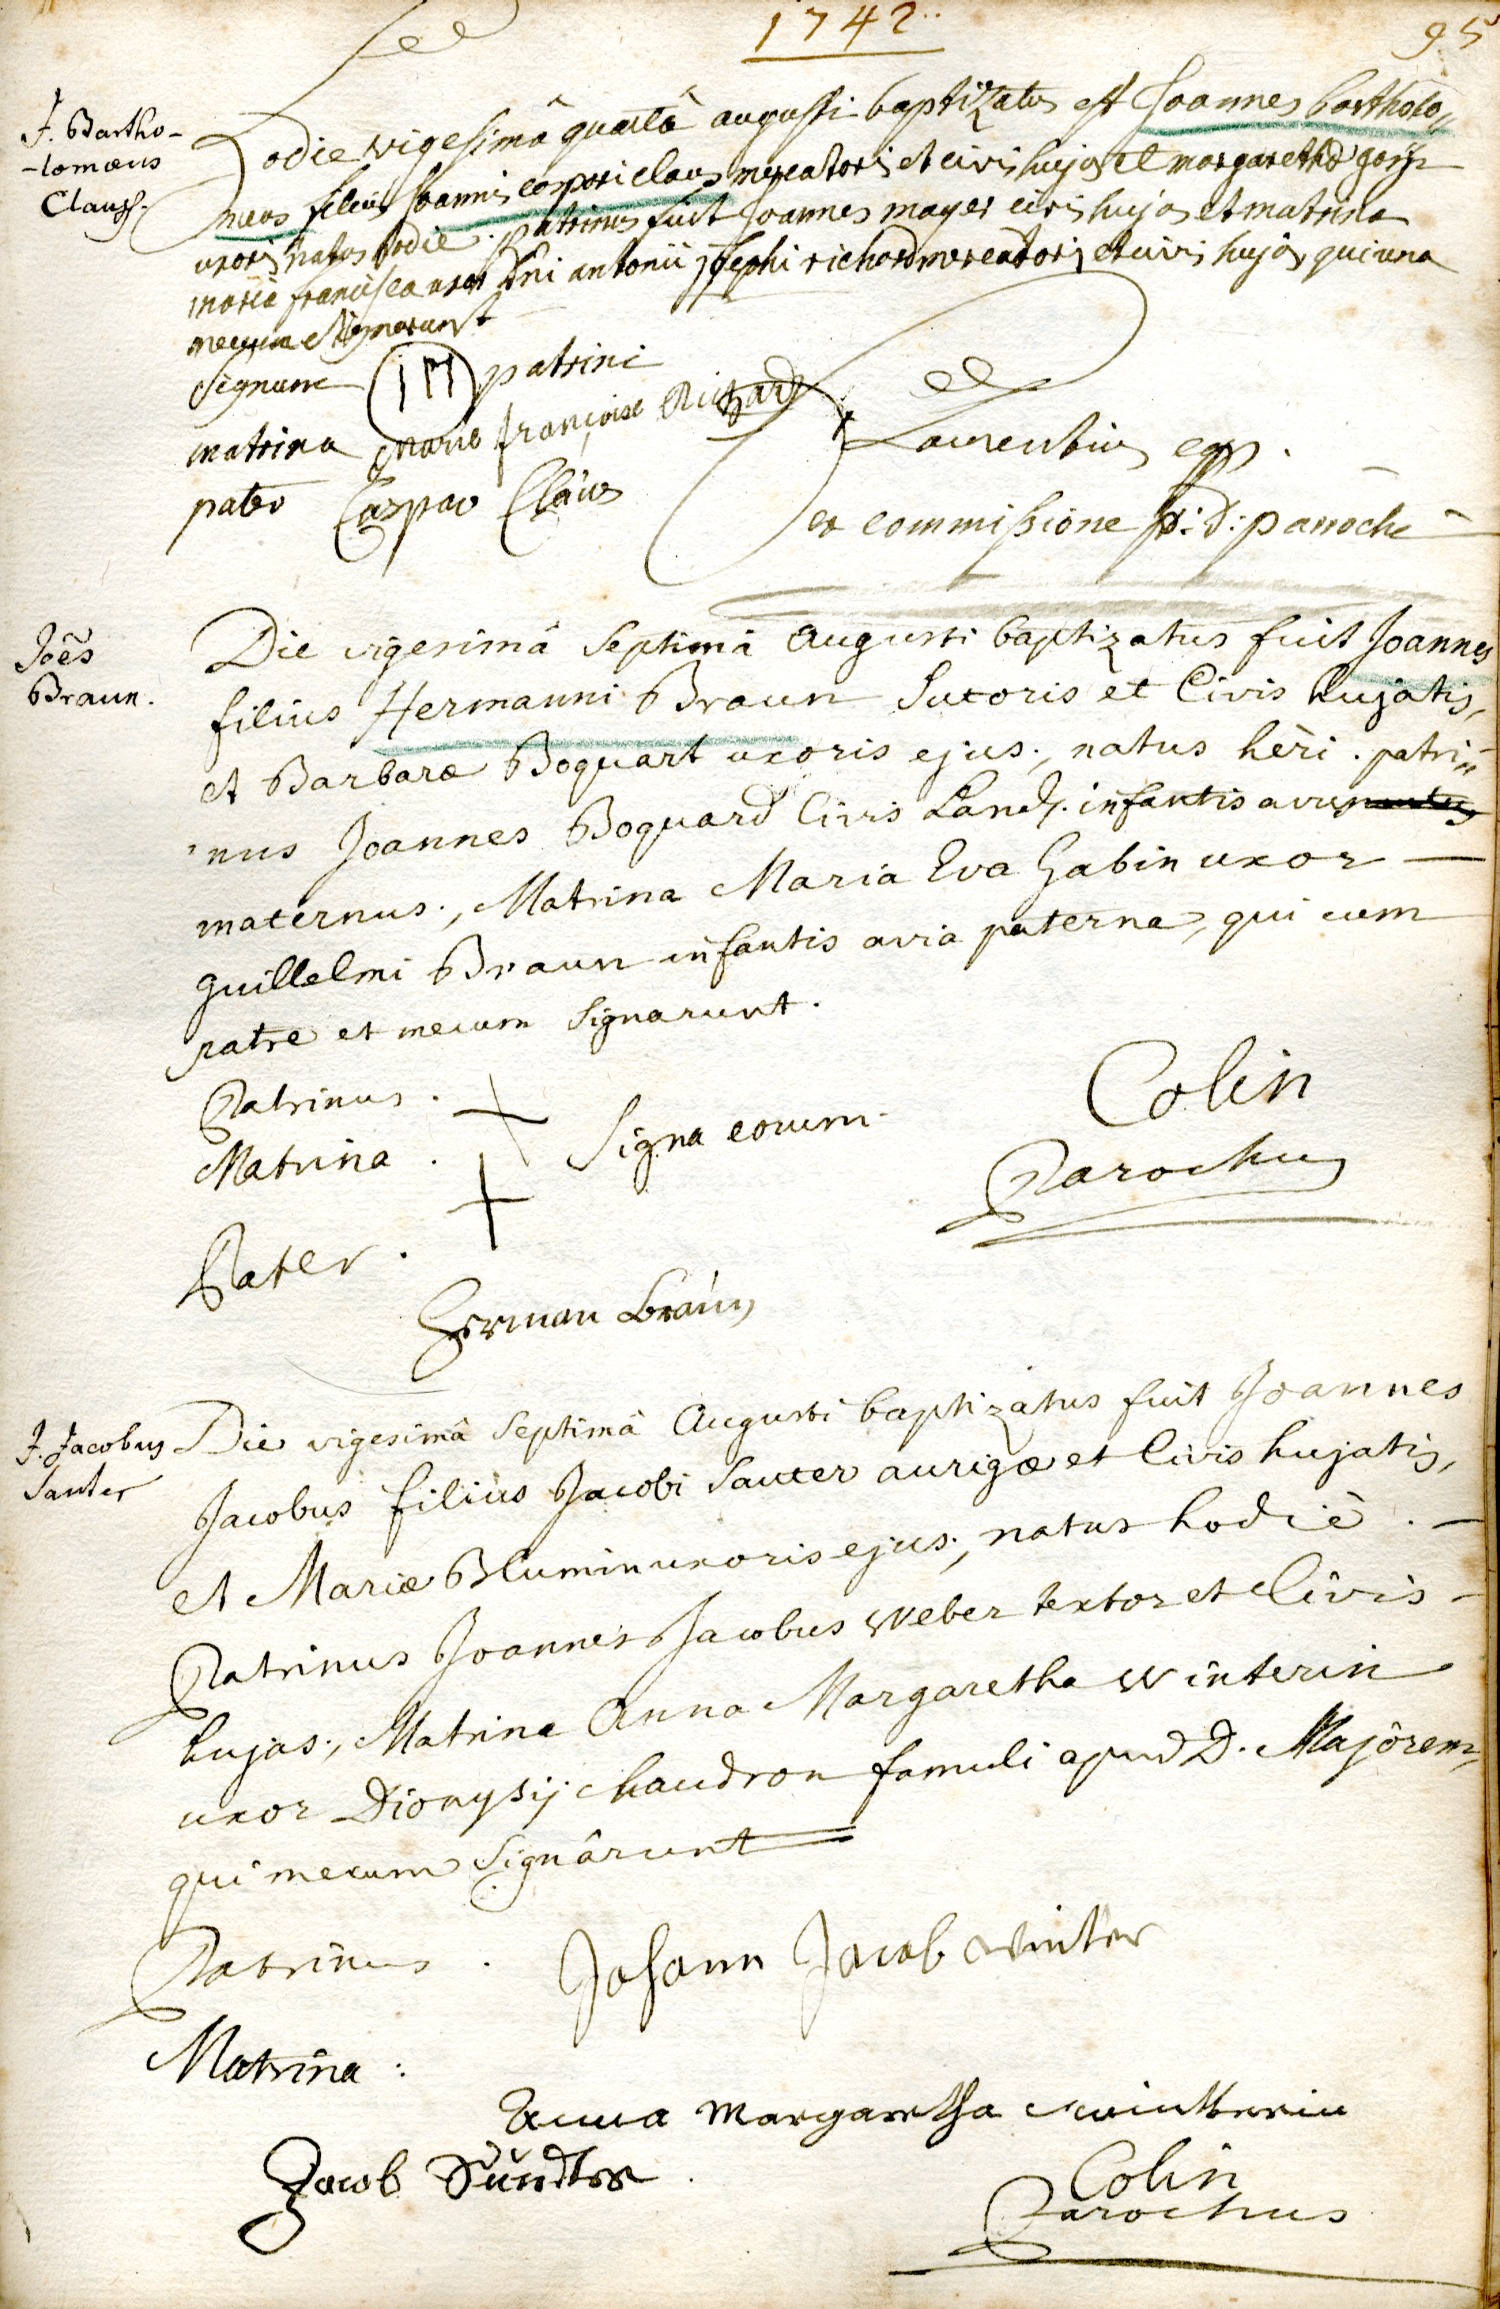 1742
95
J. Bartho-
-lomæus
Clauss.
hodie vigesimâ quartâ augusti baptizatus est Joannes bartholo„
meus filius Joannis caspari claus mercatoris et civis hujas et margarethæ
uxoris natus hodie. patrinus fuit Joannes mayer civis hujas et matrina
maria francisca uxor Dni antonii josephi richard mercatoris et civis hujas, qui una
mecum signarunt
Signum IM patrini
matrina Marie françoise Richard
pater Caspar Claus
Laurentius
ex commissione R: d: parochi
Joēs
Braun.
Die vigesimâ Septimâ Augusti baptizatus fuit Joannes
filius Hermanni Braun Sutoris et Civis hujatis,
et Barbaræ Boquart uxoris ejus; natus hèri. patri„
nus Joannes Boquard Civis Land. infantis avus
maternus; Matrina Maria Eva Gabin uxor
guillelmi Braun infantis avia paterna, qui cum
patre et mecum Signarunt.
Patrinus.
Matrina. Signa eorum.
Colin
Parochus
Pater.
Herman Braun
J. Jacobus
Sauter
Die vigesimâ Septimâ Augusti baptizatus fuit Joannes
Jacobus filius Jacobi Sauter aurigæ et Civis hujatis,
et Mariæ Blumin uxoris ejus; natus hodiè.
Patrinus Joannes Jacobus Weber textor et Civis
hujas; Matrina Anna Margaretha Winterin
uxor Dionysij chaudron famuli apud D. Majôrem,
qui mecum Signârunt
Patrinus. Johann Jacob
Matrina:
Anna Margaretha
Jacob
Colin
Parochus